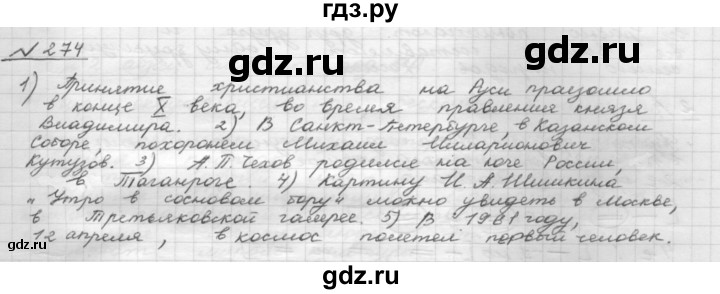 гдз.ру
№ 274
1) Принятие христианства на Руси произошло
в конце X века, во время правления князя
Владимира. 2) В Санкт-Петербурге, в Казанском
Соборе, похоронен Михаил Илларионович
Кутузов. 3) А.П.Чехов родился на юге России,
в Таганроге. 4) Картину И.А.Шишкина
"Утро в сосновом бору" можно увидеть в Москве,
в Третьяковской галерее. 5) В 1961 году,
12 апреля, в космос полетел первый человек.
gdz.ru
gdz.ru
gdz.ru
gdz.ru
gdz.ru